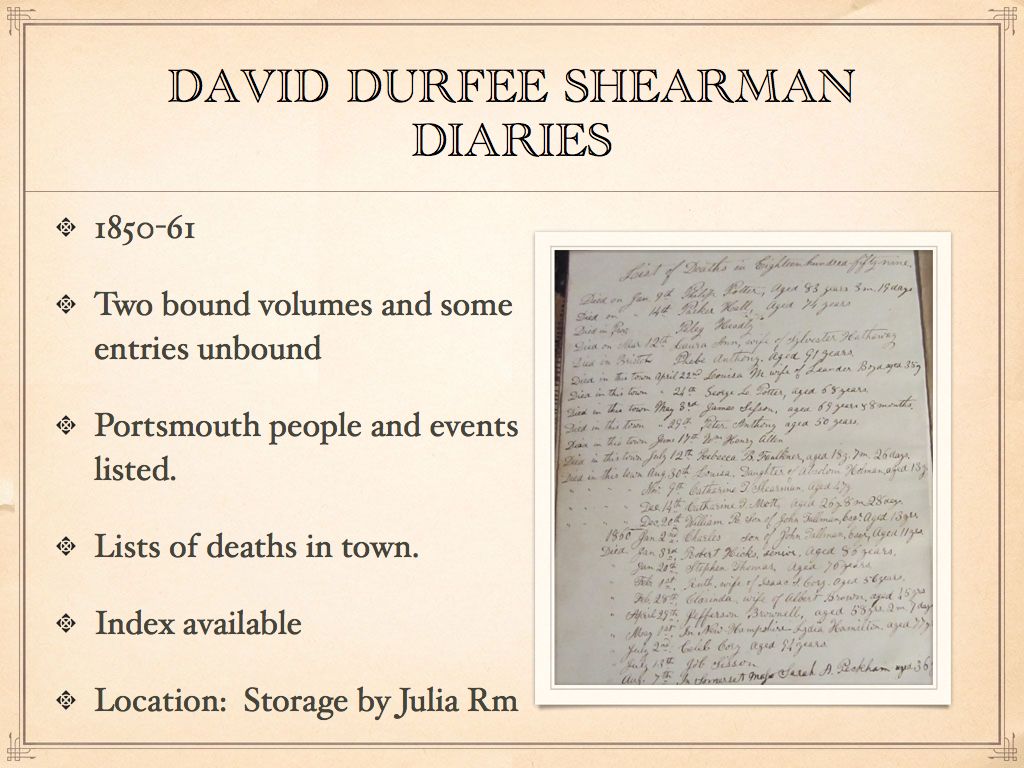 DAVID DURFEE SHEARMAN
DIARIES
1850-61
Two bound volumes and some
entries unbound
Portsmouth people and events
listed.
Lists of deaths in town.
Index available
Location: Storage by Julia Rm
List of Deaths in Eighteen hundred fifty-nine.
Died on Jan. 9th Philip Potter, Aged 83 years 3m. 19 days
Died on " 14th Parker Hall, Aged 74 years
Died in
Died on Mar 12th Laura Ann, wife of Sylvester Hathaway
Died in Bristol Phebe Anthony. Aged 91 years
Died in this town April 22nd Louisa M wife of Leander
Died in this town " 24th George L. Potter, aged 68 years.
Died in this town May 3rd James Sisson, aged 69 years & 8 months.
Died in this town " 29th Peter Anthony aged 50 years.
Died in this town June 17th Wm Henry Allen
Died in this town July 12th Rebecca B. Faulkner, aged 18y. 7m. 26 days.
Died in this town Aug. 30th Louisa. Daughter of Holman, aged 13y
" " " " Nov. 9th Catharine Shearman, aged
" " " " Dec. 14th Catharine Mott, aged 26y 8m 28 days
" " " " Dec. 20th William son of John Tallman, Esqr Aged 13 yrs
1860 Jan 2nd. Charles son of John Tallman, Esqr, Aged 11 yrs
Died Jan 3rd, Robert Hicks, senior, Aged 86 years,
" Jan 20th Stephen Thomas Aged 76 years
" Feb. 1st. Ruth, wife of Isaac Cory. Aged 56 years.
" Feb. 28th, Clarinda, wife of Albert Brown, aged
" April 29th, Jefferson Brownell, aged 58 yrs. 2m. 7 days
" May 1st In New-Hampshire Lydia Hamilton, aged 77
" July 2nd Caleb Cory aged 94 years
" July 13th Job Sisson
Aug. 7th. In Somerset Mass Sarah A. Peckham aged 36